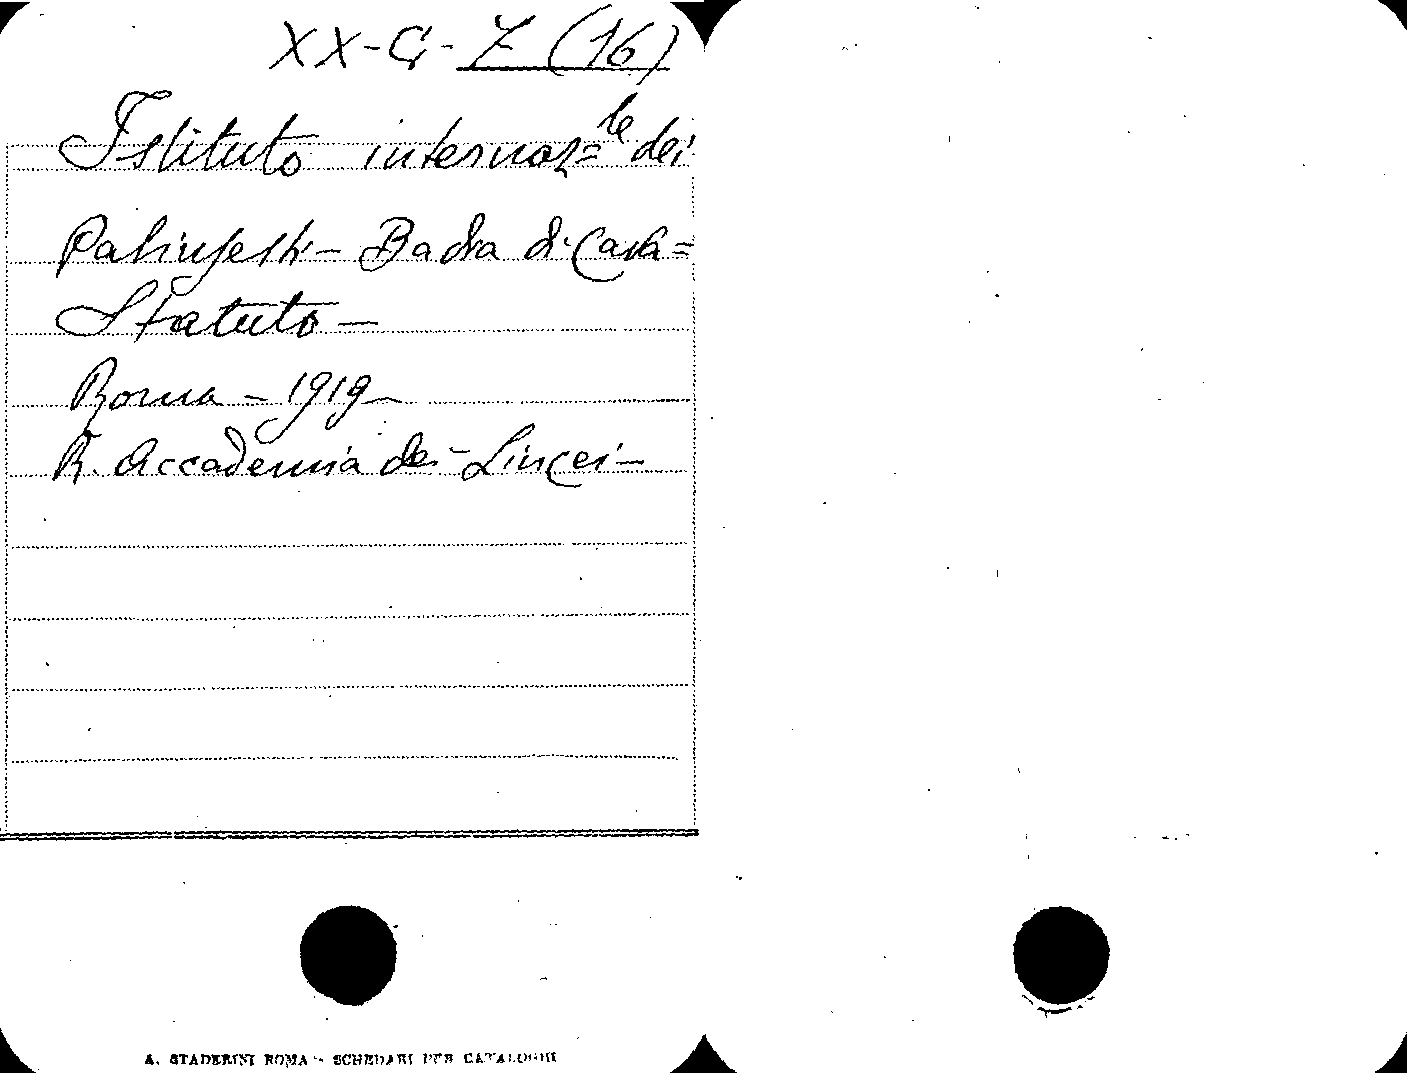 XX-G-7 (16)
Istituto internaz=le dei
Palinsesti - Badia di Cava =
Statuto -
Roma - 1919 -
R. Accademia dei Lincei -
A. STADERINI ROMA - SCHEDARI PER CATALOGHI